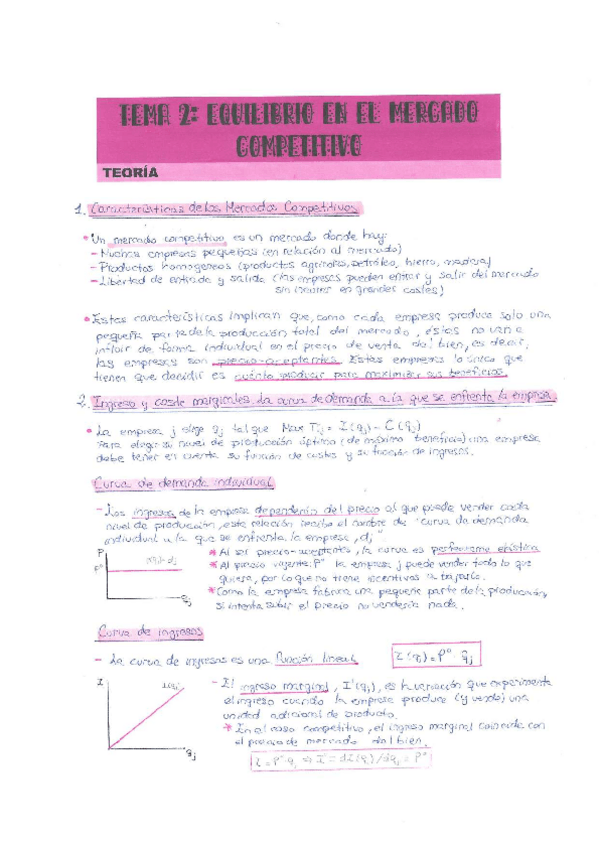 TEMA 2: EQUILIBRIO EN EL MERCADO
COMPETITIVO
TEORÍA
1. Características de los Mercados Competitivos
• Un mercado competitivo es un mercado donde hay:
- Muchas empresas pequeñas (en relación al mercado)
- Productos homogéneos (productos agrícolas, petróleo, hierro, madera)
- Libertad de entrada y salida (las empresas pueden entrar y salir del mercado
sin incurrir en grandes costes)
• Estas características implican que, como cada empresa produce solo una
pequeña parte de la producción total del mercado, éstas no van a
influir de forma individual en el precio de venta del bien, es decir,
las empresas son precio-aceptantes. Estas empresas lo único que
tienen que decidir es cuánto producir para maximizar sus beneficios.
2. Ingreso y coste marginales. La curva de demanda a la que se enfrenta la empresa
• La empresa j elige qj tal que Max πj = I(qj) - C(qj)
Para elegir su nivel de producción óptimo (de máximo beneficio) una empresa
debe tener en cuenta su función de costes y su función de ingresos.
Curva de demanda individual
- Los ingresos de la empresa dependerán del precio al que pueda vender cada
nivel de producción, esta relación recibe el nombre de "curva de demanda
individual a la que se enfrenta la empresa, dj"
P
P*
qj
* Al ser precio-aceptantes, la curva es perfectame elástica
* Al precio vigente P* la empresa j puede vender todo lo que
quiera, por lo que no tiene incentivos a bajarlo.
* Como la empresa fabrica una pequeña parte de la producción,
si intenta subir el precio no vendería nada.
Curva de ingresos
- La curva de ingresos es una función lineal
I(qj) = P* qj
I
I(qj)
qj
- El ingreso marginal, I'(qj), es la variación que experimenta
el ingreso cuando la empresa produce (y vende) una
unidad adicional de producto.
* En el caso competitivo, el ingreso marginal coincide con
el precio de mercado del bien.
I = P* qj ⇒ I' = dI(qj)/dqj = P*